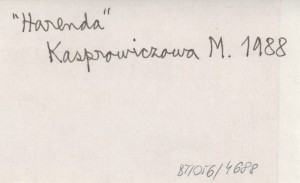 "Harenda"
Kasprowiczowa M. 1988
BT/OT6/4688